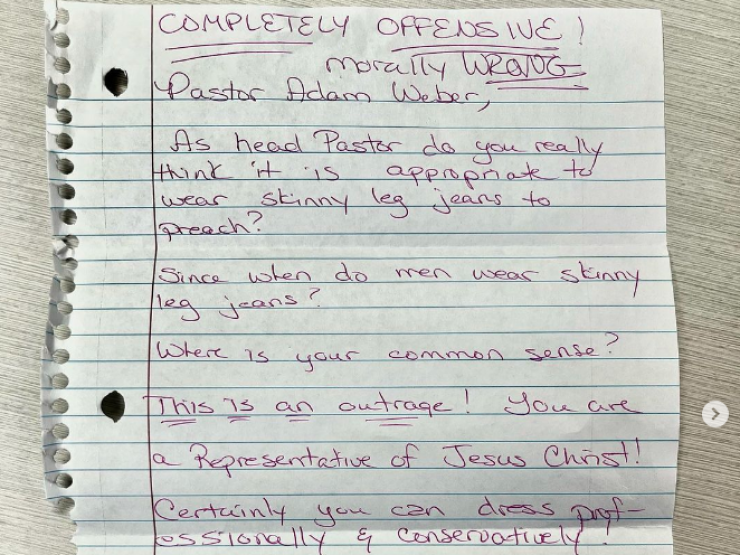 COMPLETELY OFFENSIVE!
morally WRONG
Pastor Adam Weber,
As head Pastor do you really
think it is appropriate to
wear skinny leg jeans to
preach?
Since when do men wear skinny
leg jeans?
Where is your common sense?
This is an outrage! You are
a Representative of Jesus Christ!
Certainly you can dress prof-
essionally & conservatively!